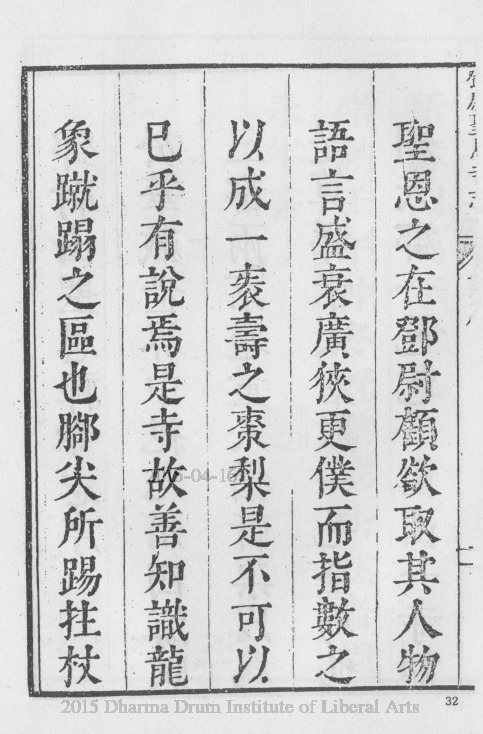 聖恩之在鄧尉顧欲取其人物
語言盛衰廣狹更僕而指數之
以成一袠壽之棗梨是不可以
已乎有說焉是寺故善知識龍
象蹴蹋之區也腳尖所踢拄杖
32
2015 Dharma Drum Institute of Liberal Arts